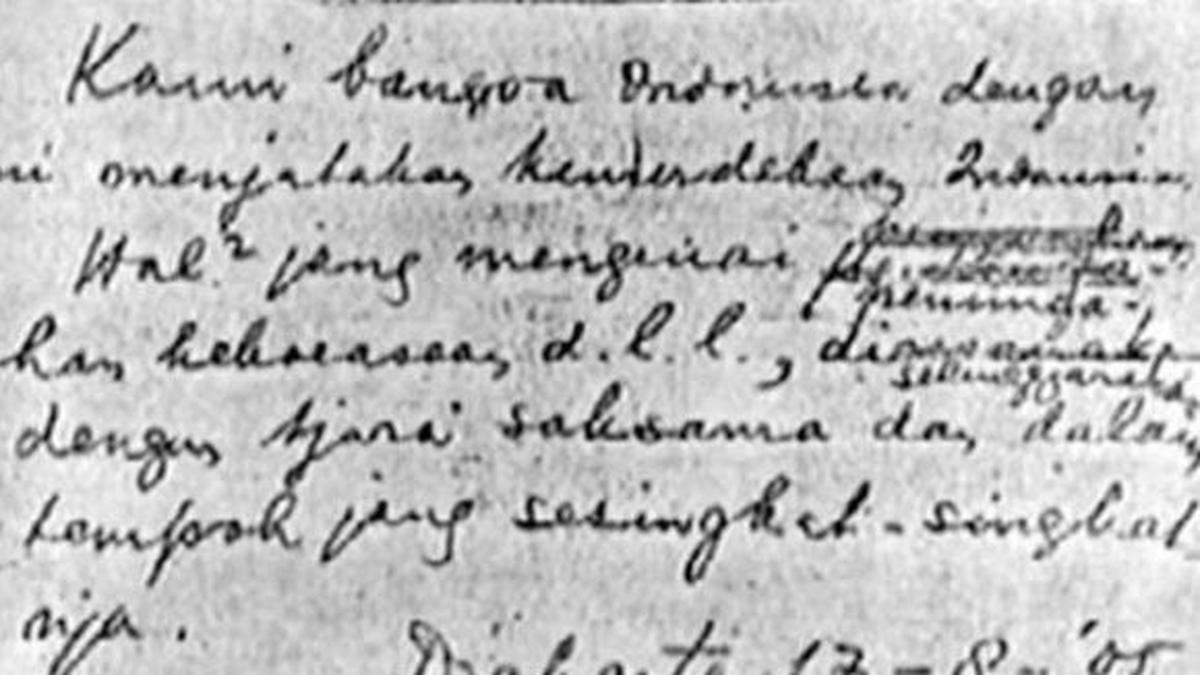 Kami bangsa Indonesia dengan
ni menjatakan kemerdekaan Indonesia.
Hal² jang mengenai
peminda-
han kekoeasaan d.l.l.,
diselenggarakan
dengan tjara saksama dan dalam
tempoh jang sesingkat-singkat
nja.
Djakarta 17-8-'05